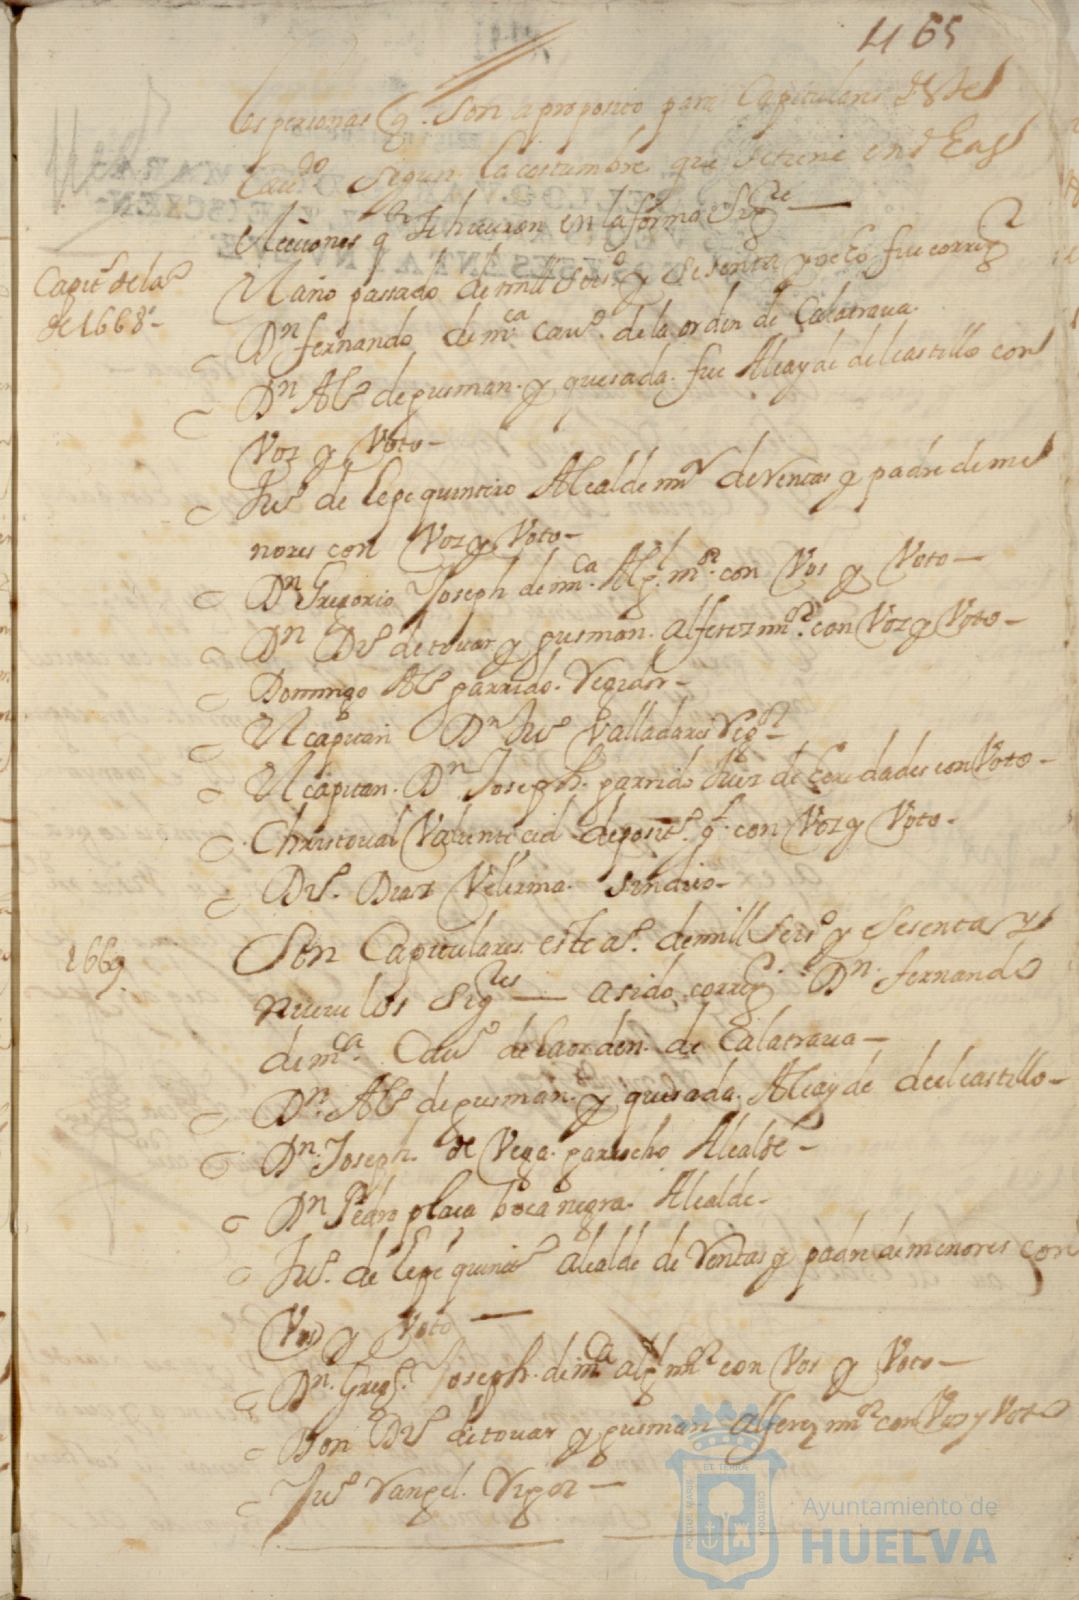 465
las personas q. Son a proposito para Capitulares deste
Cavdo Segun la costumbre que se tiene en las
elecciones q se hacian en la forma Sigte
Capits de la
de 1668
El año pasado de mill Seisº y Sesenta y ocho fue corregr
Dn fernando de mca Cavº de la orden de Calatraua.
Dn Alº de gusman y quesada fue Alcayde del castillo con
Voz y Voto
Juº de lepe quintero Alcalde mr de Ventas y padre de me
nores con Voz y Voto
Dn Gregorio Joseph de mca Alg. mor con Vos y Voto
Dn Dº de touar y gusman alferez mor con Voz y Voto
Domingo Alº garrido Regidor
El capitan Dn Juº Valladares Regor
El capitan Dn Joseph garrido Juez de heredades con Voto
Christoual Valiente cid deposito gl con Voz y Voto
Dº Diaz Velerma sindico
1669
Son Capitulares este aº de mill Seisº y Sesenta y
nueue los Sigtes a sido corregr Dn fernando
de mca Cauº de la orden de Calatraua
Dn Alº de gusman y quesada Alcayde del castillo
Dn Joseph de Vega garrocho Alcalde
Dn Pedro plaça boca negra Alcalde
Juº de lepe quintº alcalde de Ventas y padre de menores con
Vos y Voto
Dn Gregº Joseph de mca alg mor con Vos y Voto
Don Dº de touar y gusman alferez mor con Voz y Voto
Juº Rangel Regor
PORTUS MARIS ET TERRAE CUSTODIA
Ayuntamiento de
HUELVA